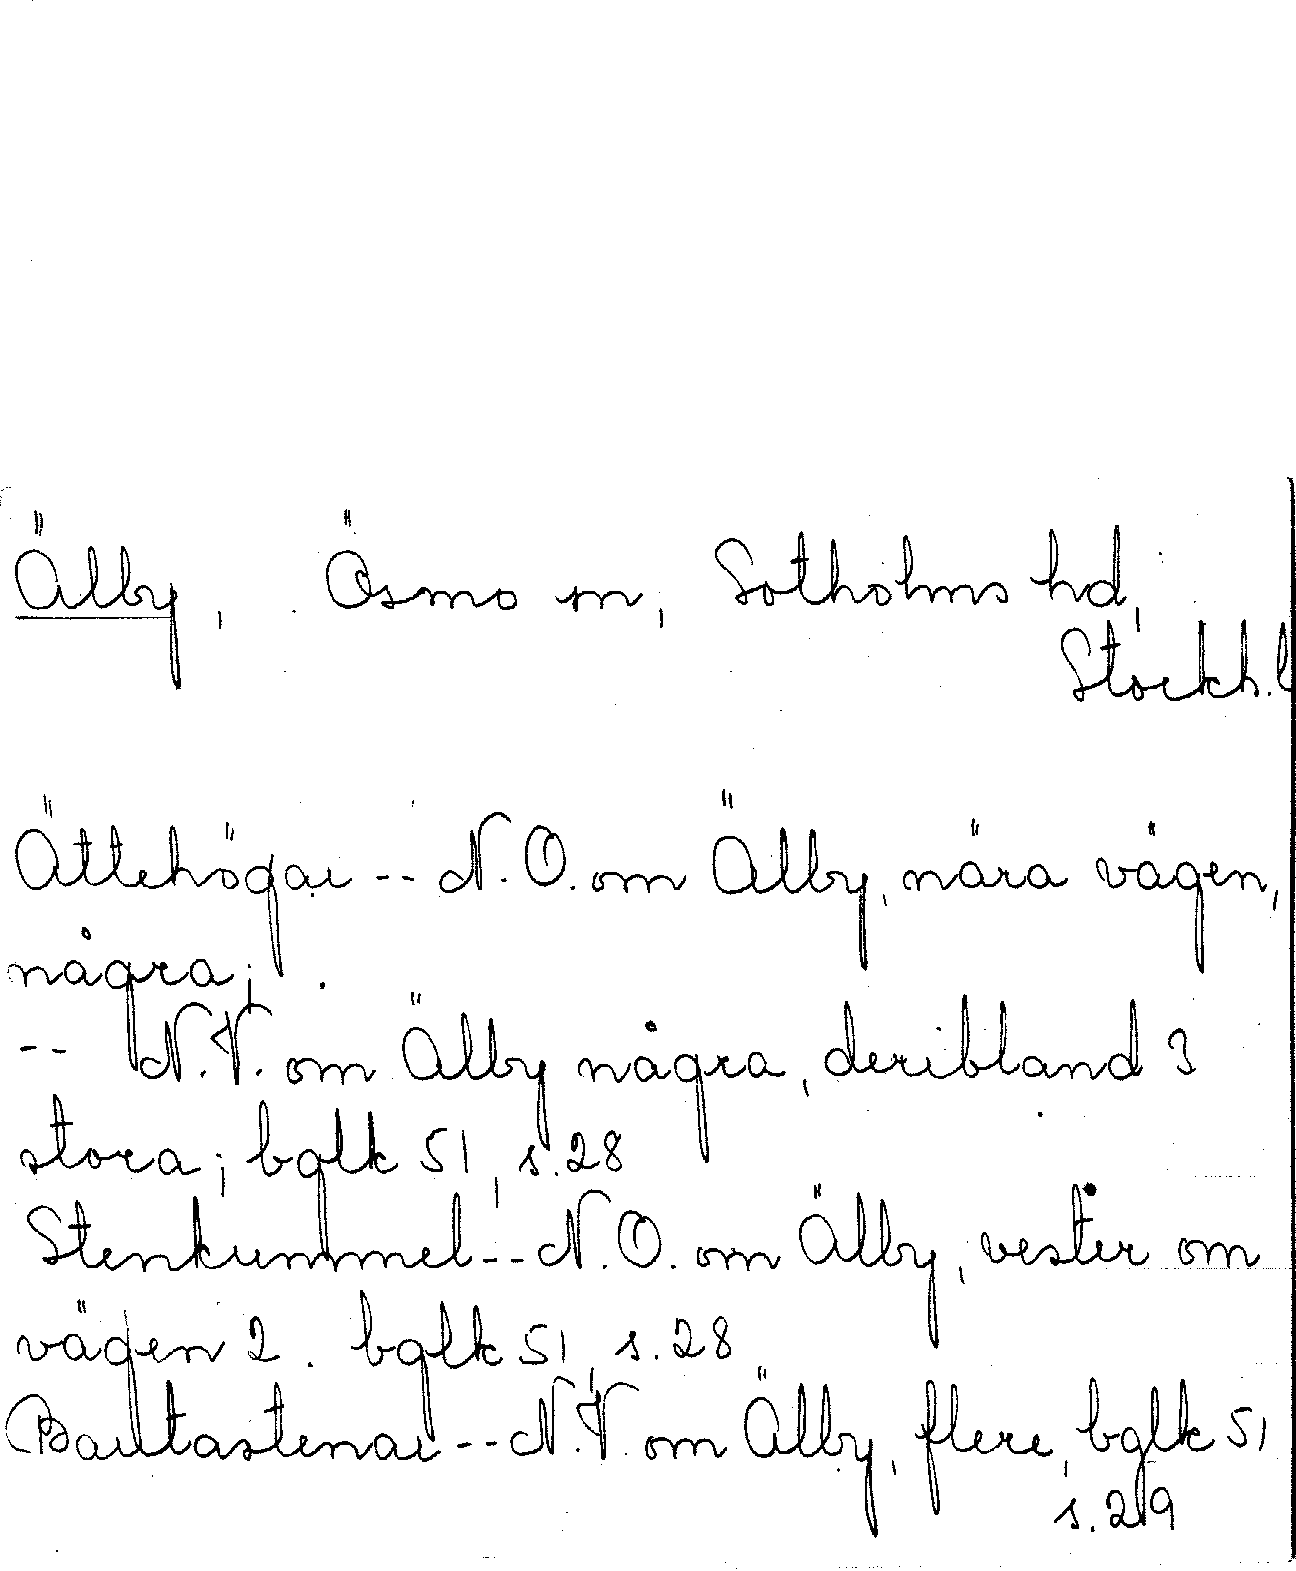 Älby, Ösmo sn, Sotholms hd,
Stockh. l
Ättehögar -- N.O. om Älby, nära vägen,
några;
-- N.V. om Älby några, deribland 3
stora; bglk 51, s. 28
Stenkummel -- N.O. om Älby, vester om
vägen 2. bglk 51, s. 28
Bautastenar -- N.V. om Älby, flere, bglk 51
s. 29